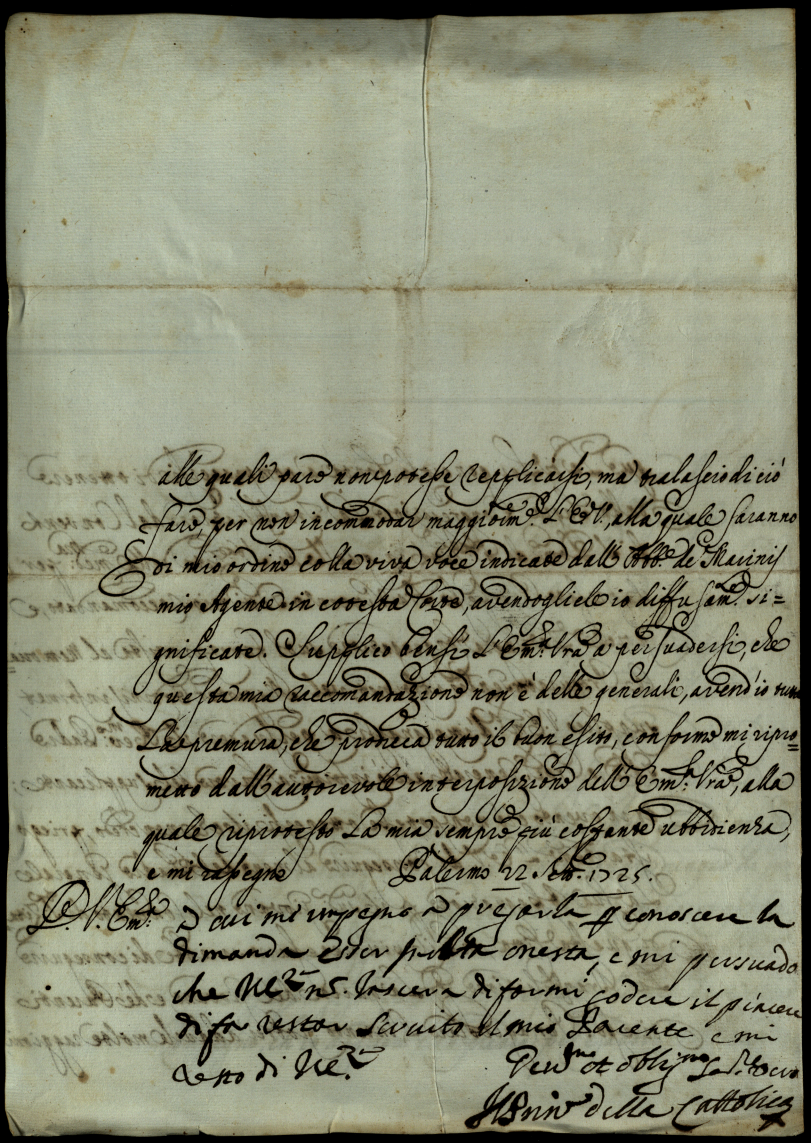 alle quali pare non potesse repplicarsi, ma tralascio di ciò
fare, per non incommodar maggiorm.e L'E.V., alla quale saranno
di mio ordine colla viva voce indicate dall' Abb.e de Marinis
mio Agente in cotesta Corte, avendogliele io diffusam.e si=
gnificate. Supplico bensì L'Em.a Vra a persuadersi, che
questa mia raccomandazione non è delle generali, avend'io tutta
La premura, che proveca tutto il buon esito, conforme mi ripro=
metto dall'autorevole interposizione dell' Em.a Vra, alla
quale riprotesto La mia sempre più costante ubbidienza,
e mi rassegno Palermo 22. Sett.e 1725.
D. V. Em.a a cui mi impegno a pregarla p conoscere la
dimanda esser molto onesta, e mi persuado
che VE. ns. lascera di farmi godere il piacere
di far restar servito il mio Parente e mi
resto di VE.
Dev.mo et oblig.mo Ser.
Il Prin.e della Cattolica